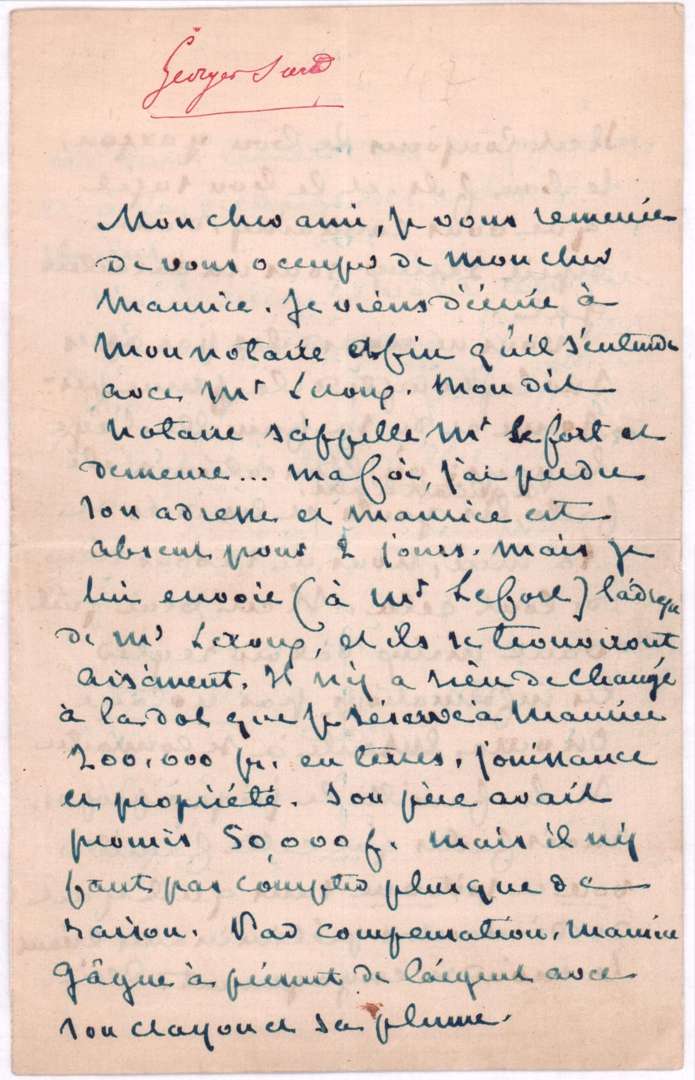 Georges Sand
Mon cher ami, je vous remercie
de vous occuper de mon cher
Maurice. Je viens d'écrire à
mon notaire afin qu'il s'entende
avec Mr. Mon dit
notaire s'appelle Mr Lefort et
demeure... ma foi, j'ai perdu
son adresse et Maurice est
absent pour 2 jours. Mais je
lui envoie (à Mr Lefort) l'adresse
de Mr, et ils se trouveront
aisément. Il n'y a rien de changé
à la dot que je réserve à Maurice
200.000 fr. en terres, jouissance
et propriété. Son père avait
promis 50,000 f. mais il n'y
faut pas compter plus que de
raison. Par compensation, Maurice
gâgne à présent de l'argent avec
son crayon et sa plume.